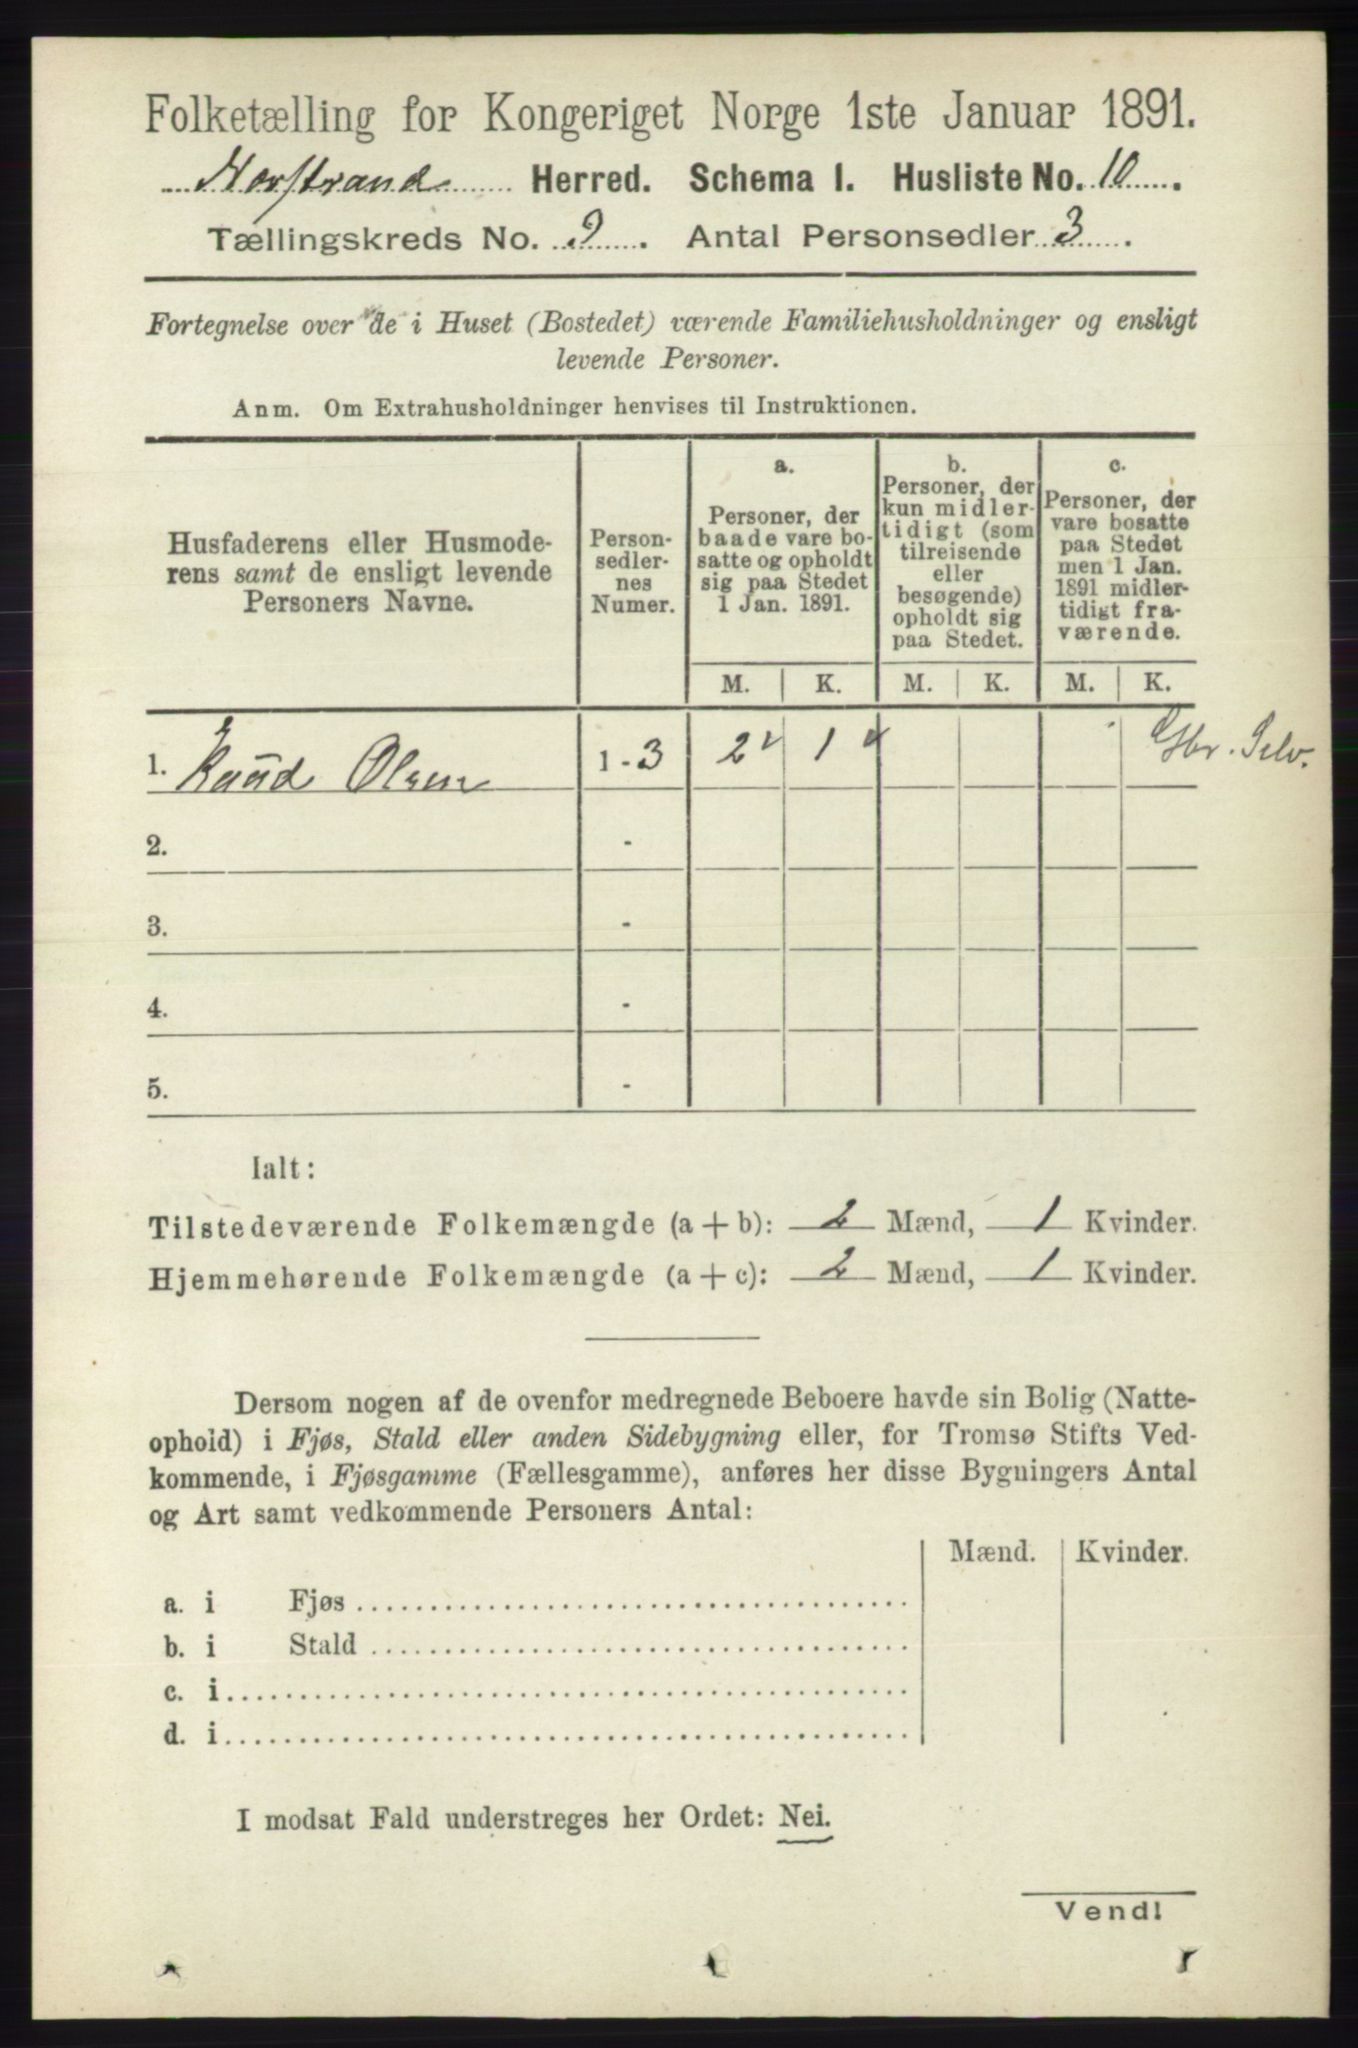 Folketælling for Kongeriget Norge 1ste Januar 1891.
Nerstrand Herred. Schema I. Husliste No. 10.
Tællingskreds No. 9. Antal Personsedler 3.
Fortegnelse over de i Huset (Bostedet) værende Familiehusholdninger og ensligt
levende Personer.
Anm. Om Extrahusholdninger henvises til Instruktionen.
Husfaderens eller Husmode-
rens samt de ensligt levende
Personers Navne.
Person-
sedler-
nes
Numer.
a.
Personer, der
baade vare bo-
satte og opholdt
sig paa Stedet
1 Jan. 1891.
b.
Personer, der
kun midler-
tidigt (som
tilreisende
eller
besøgende)
opholdt sig
paa Stedet.
c.
Personer, der
vare bosatte
paa Stedet
men 1 Jan.
1891 midler-
tidigt fra-
værende.
M. K. M. K. M. K.
1. Knud Olsen 1-3 2 1 Gbr. Selv.
2. -
3. -
4. -
5. -
Ialt:
Tilstedeværende Folkemængde (a + b): 2 Mænd, 1 Kvinder.
Hjemmehørende Folkemængde (a + c): 2 Mænd, 1 Kvinder.
Dersom nogen af de ovenfor medregnede Beboere havde sin Bolig (Natte-
ophold) i Fjøs, Stald eller anden Sidebygning eller, for Tromsø Stifts Ved-
kommende, i Fjøsgamme (Fællesgamme), anføres her disse Bygningers Antal
og Art samt vedkommende Personers Antal:
Mænd. Kvinder.
a. i Fjøs
b. i Stald
c. i
d. i
I modsat Fald understreges her Ordet: Nei.
Vend!